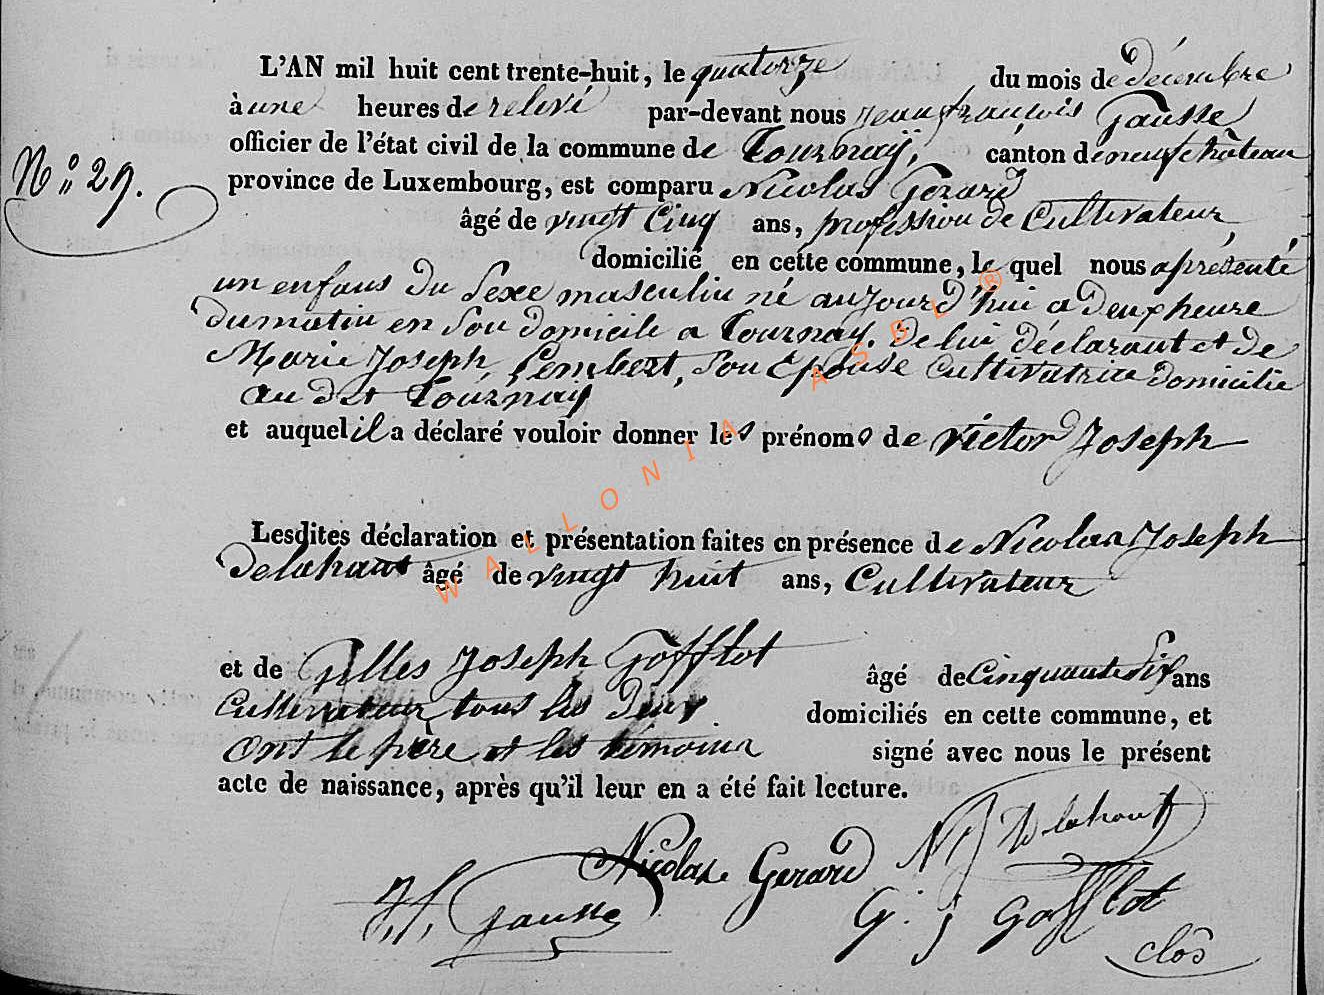 L'AN mil huit cent trente-huit, le quatorze du mois de décembre
à une heures de relevé par-devant nous jean françois Gausse
officier de l'état civil de la commune de Tournay, canton de neufchâteau
N.° 29. province de Luxembourg, est comparu Nicolas Gerard
âgé de vingt Cinq ans, profession de Cultivateur,
domicilié en cette commune, le quel nous a présenté
un enfans du Sexe masculin né aujourd'hui a deux heure
du matin en Son domicile a Tournay. de lui déclarant et de
Marie Joseph, Lembert, Son Epouse Cultivatrice domicilie
au dit Tournay
et auquel il a déclaré vouloir donner les prénoms de Victor Joseph
Lesdites déclaration et présentation faites en présence de Nicolas Joseph
Delahaut âgé de vingt huit ans, Cultivateur
et de Gilles Joseph Gofflot âgé de Cinquante Six ans
Cultivateur tous les deux domiciliés en cette commune, et
Ont le père et les témoins signé avec nous le présent
acte de naissance, après qu'il leur en a été fait lecture.
Nicolas Gerard N J Delahaut
J. f. Gausse G. j Gofflot
clos
WALLONIA ASBL ®